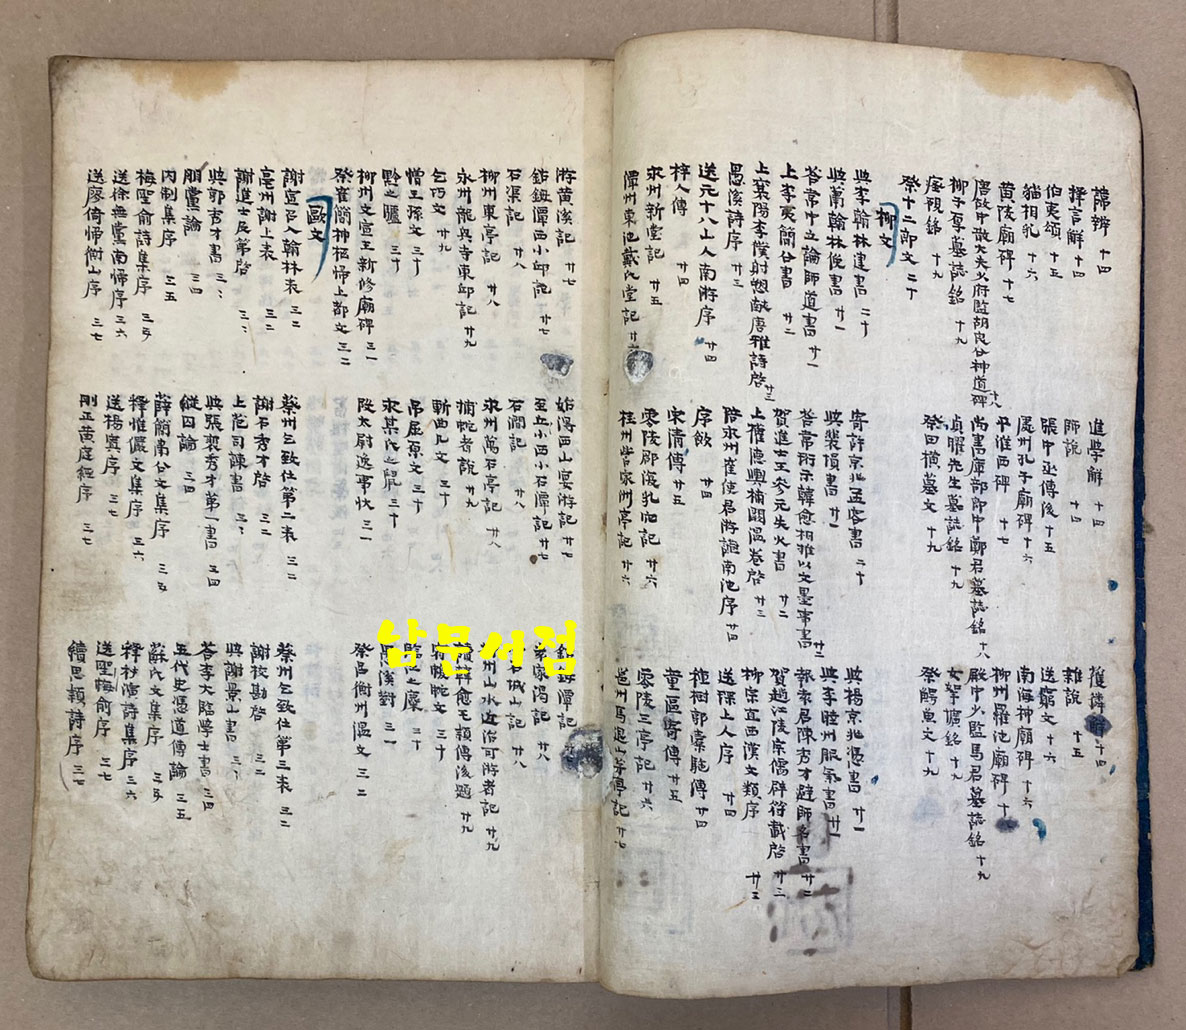 諱辨 十四
進學解 十四
獲麟解 十四
擇言解 十四
師說 十四
雜說 十五
伯夷頌 十五
張中丞傳後 十五
送窮文 十六
猫相乳 十六
處州孔子廟碑 十六
南海神廟碑 十六
黄陵廟碑 十七
平淮西碑 十七
柳州羅池廟碑 十七
唐故中散大夫少府監胡良公神道碑 十八
尚書庫部郎中鄭君墓誌銘 十八
殿中少監馬君墓誌銘 十九
柳子厚墓誌銘 十九
貞曜先生墓誌銘 十九
女挐壙銘 十九
瘞硯銘 十九
祭田橫墓文 十九
祭鱷魚文 十九
祭十二郎文 二十
柳文
與李翰林建書 二十
寄許京兆孟容書 二十
與楊京兆憑書 廿一
與蕭翰林俛書 廿一
與裴塤書 廿一
與李睦州服氣書 廿一
答韋中立論師道書 廿一
答韋珩示韓愈相推以文墨事書 廿二
報袁君陳秀才避師名書 廿二
上李夷簡公書 廿二
賀進士王參元失火書 廿二
賀趙江陵宗儒辟符載啓 廿三
上襄陽李僕射愬獻唐雅詩啓 廿三
上權德輿補闕溫卷啓 廿三
柳宗直西漢文類序 廿三
愚溪詩序 廿三
陪永州崔使君游讌南池序 廿四
送琛上人序 廿四
送元十八山人南游序 廿四
序飲 廿四
種樹郭橐駝傳 廿四
梓人傳 廿四
宋清傳 廿五
童區寄傳 廿五
永州新堂記 廿五
零陵郡復乳穴記 廿六
零陵三亭記 廿六
潭州東池戴氏堂記 廿六
桂州訾家洲亭記 廿六
邕州馬退山茅亭記 廿七
游黄溪記 廿七
始得西山宴游記 廿七
鈷鉧潭記
鈷鉧潭西小邱記 廿七
至小邱西小石潭記 廿七
袁家渴記 廿八
石渠記 廿八
石澗記 廿八
小石城山記 廿八
柳州東亭記 廿八
永州萬石亭記 廿八
柳州山水近治可游者記 廿九
永州龍興寺東邱記 廿九
捕蛇者說 廿九
讀韓愈毛穎傳後題 廿九
乞巧文 廿九
斬曲几文 三十
宥蝮蛇文 三十
憎王孫文 三十
弔屈原文 三十
臨江之麋 三十
黔之驢 三十
永某氏之鼠 三十
愚溪對 三一
柳州文宣王新修廟碑 三一
段太尉逸事狀 三一
祭呂衡州溫文 三二
祭崔簡神柩歸上都文 三二
歐文
謝宣召入翰林表 三二
蔡州乞致仕第二表 三二
蔡州乞致仕第三表 三二
亳州謝上表 三二
謝石秀才啓 三二
謝校勘啓 三二
謝進士及第啓 三三
上范司諫書 三三
與謝景山書 三三
與郭秀才書 三三
與張棐秀才第一書 三四
答李大臨學士書 三四
朋黨論 三四
縱囚論 三四
五代史馮道傳論 三五
內制集序 三五
薛簡肅公文集序 三五
蘇氏文集序 三五
梅聖俞詩集序 三五
釋惟儼文集序 三六
釋秘演詩集序 三六
送徐無黨南歸序 三六
送楊寘序 三七
送聖梅俞序 三七
送廖倚歸衡山序 三七
刪正黄庭經序 三七
續思穎詩序 三七
남문서점